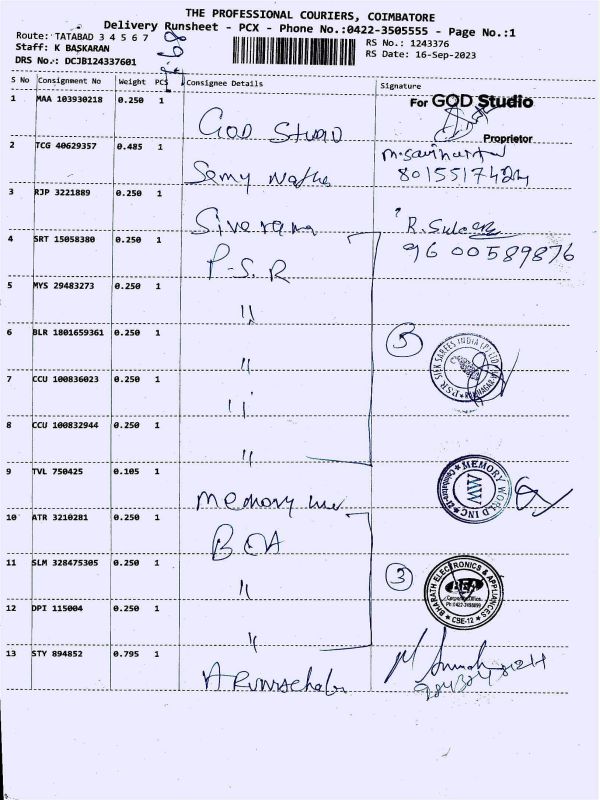 THE PROFESSIONAL COURIERS, COIMBATORE
Delivery Runsheet - PCX - Phone No.:0422-3505555 - Page No.:1
Route: TATABAD 3 4 5 6 7 8 9
Staff: K BASKARAN
DRS No.: DCJB124337601
RS No.: 1243376
RS Date: 16-Sep-2023
S No Consignment No Weight PCS Consignee Details Signature
1 MAA 103930218 0.250 1 GOD Studio For GOD Studio
Proprietor
2 TCG 40629357 0.485 1 Samy 8015517424
3 RJP 3221889 0.250 1 Sivarama R. 9600589876
4 SRT 15058380 0.250 1 P-S.R
5 MYS 29483273 0.250 1 "
6 BLR 1801659361 0.250 1 " 5
P.S.R SILK SAREES INDIA (P) LTD
7 CCU 100836023 0.250 1 "
8 CCU 100832944 0.250 1 "
9 TVL 750425 0.105 1 Memory MEMORY WORLD INC Coimbatore-12 MW
10 ATR 3210281 0.250 1 BEA
11 SLM 328475305 0.250 1 " 3
BHARATH ELECTRONICS & APPLIANCES
BEA
Corporate Office
CBE-12
12 DPI 115004 0.250 1 "
13 STY 894852 0.795 1 Arunachala